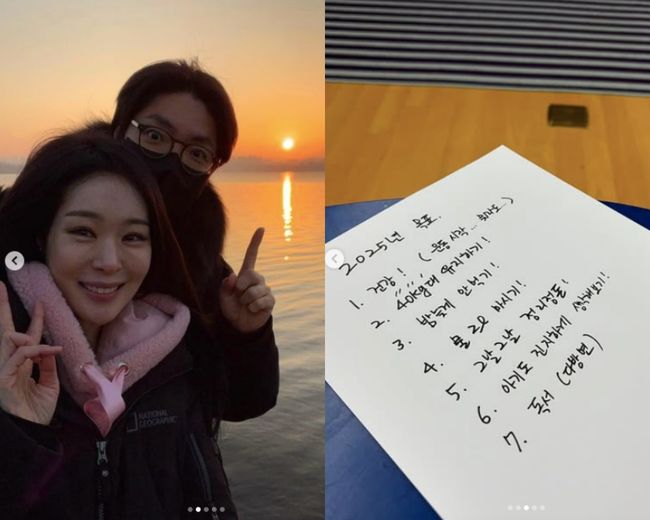 NATIONAL
GEOGRAPHIC
2025년 목표.
1. 건강! (운동 시작...
2. 40kg대 유지하기!
3. 밤늦게 안 먹기!
4. 물 2L 마시기!
5. 그날그날 정리정돈!
6. 아기도 진지하게 생각해보기!
7. 독서 (다방면)